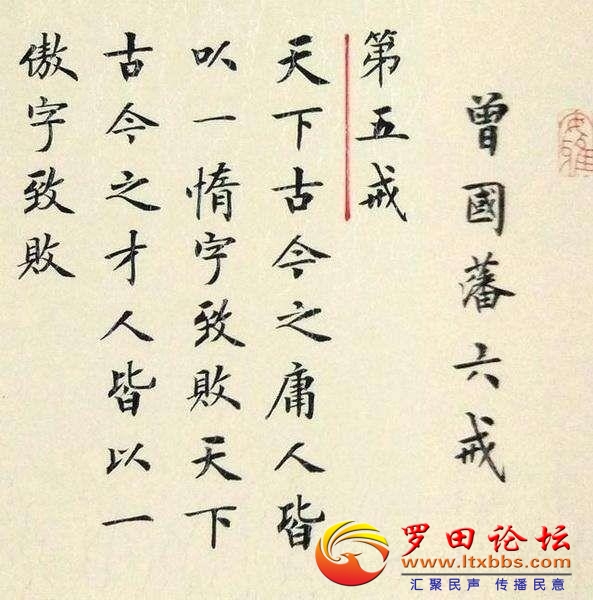 曾國藩六戒
第五戒
天下古今之庸人皆
以一惰字致敗天下
古今之才人皆以一
傲字致敗
罗田论坛
www.ltxbbs.com
汇聚民声 传播民意